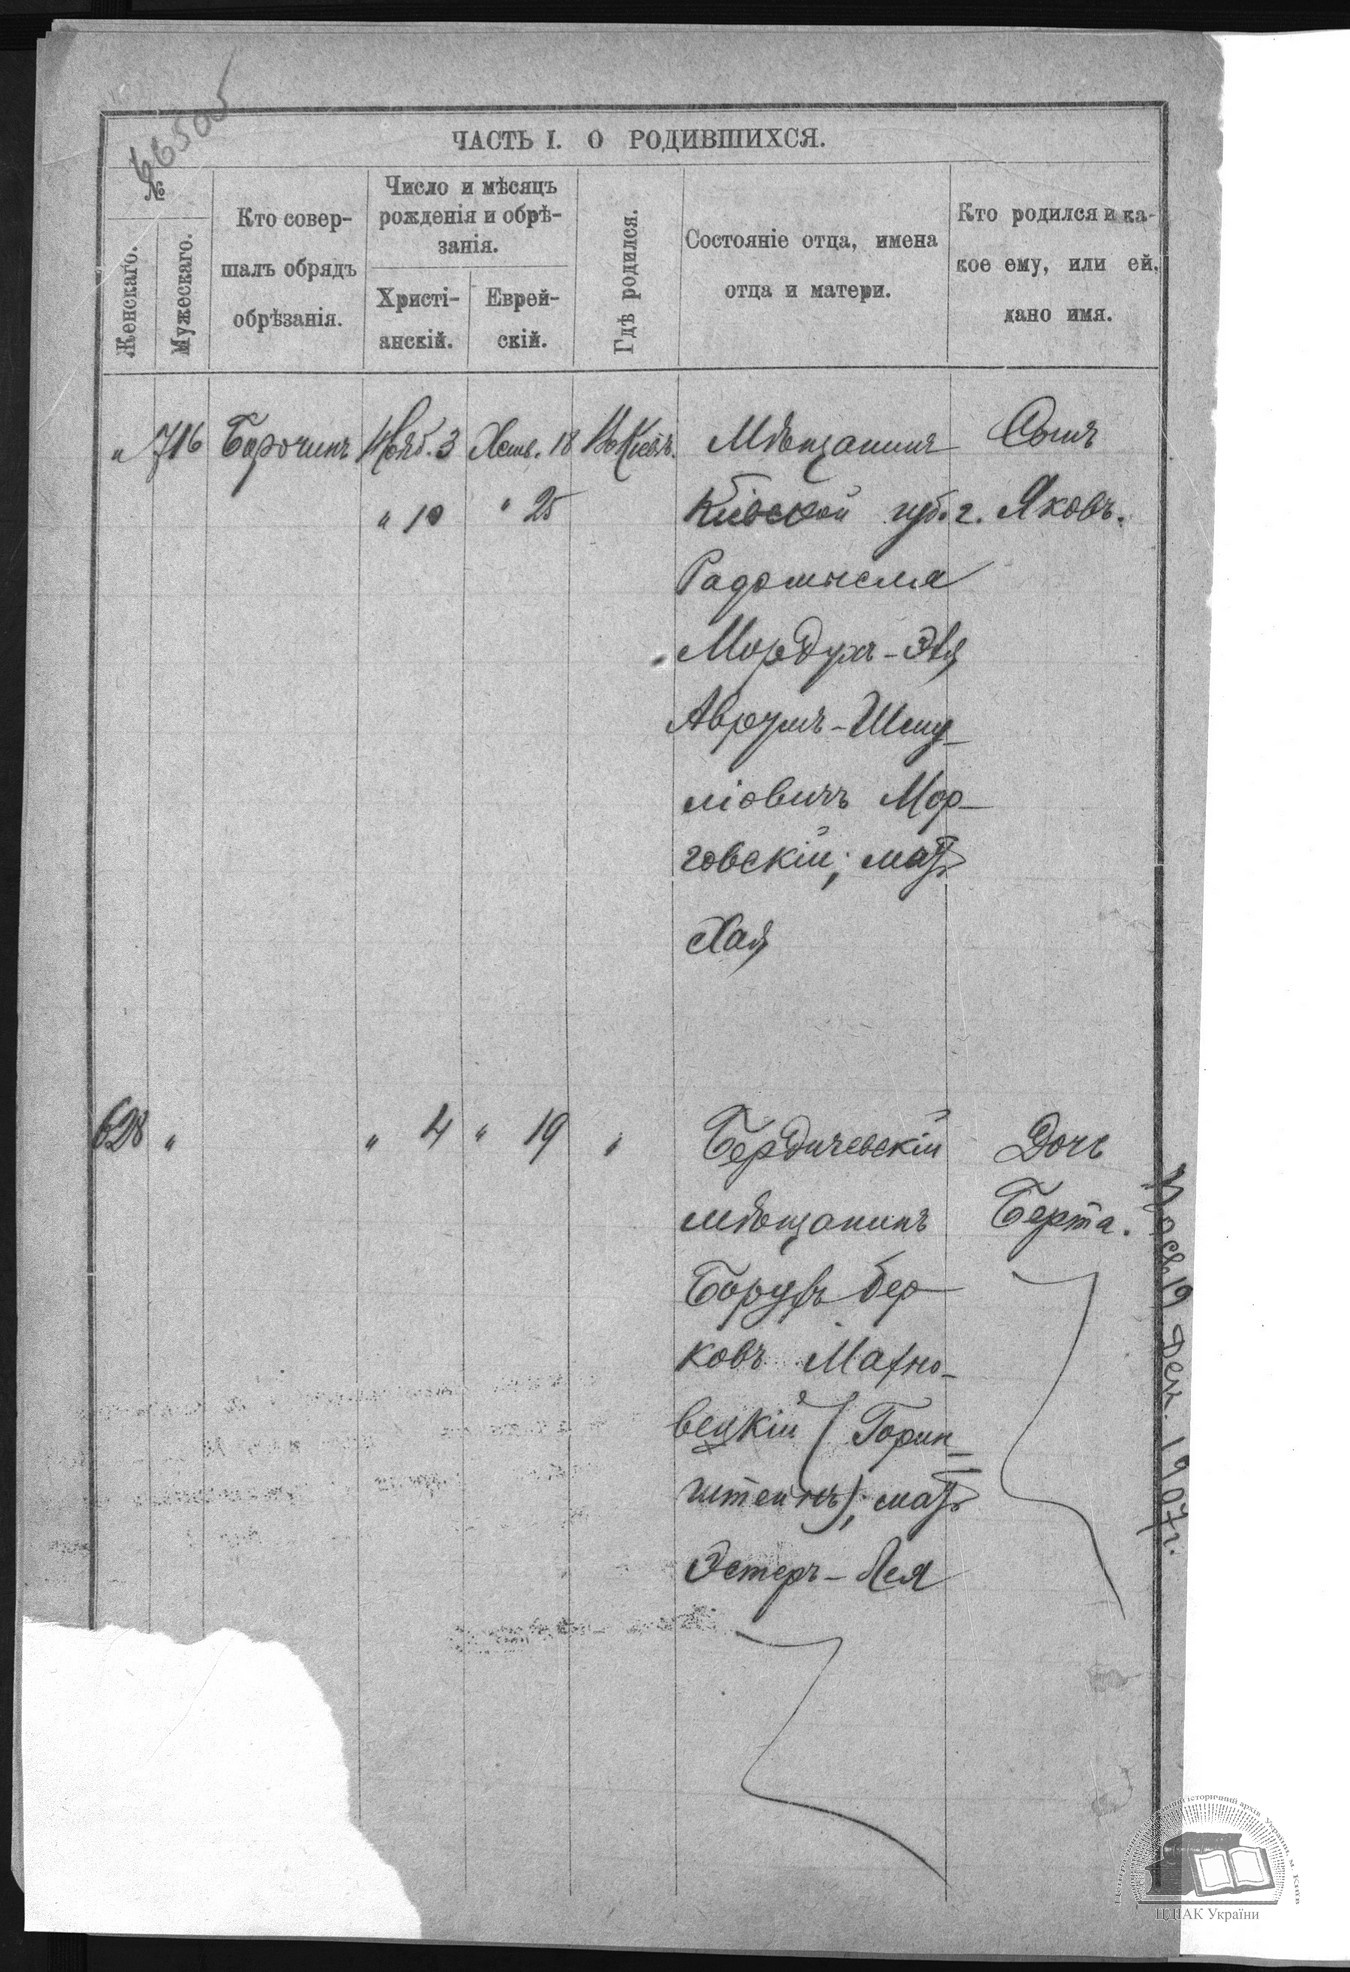 66505
ЧАСТЬ I. О РОДИВШИХСЯ.
№
Женскаго.
Мужескаго.
Кто совер-
шалъ обрядъ
обрѣзанія.
Число и мѣсяцъ
рожденія и обрѣ-
занія.
Христі-
анскій.
Еврей-
скій.
Гдѣ родился.
Состояніе отца, имена
отца и матери.
Кто родился и ка-
кое ему, или ей,
дано имя.
" 716 Борочинъ Нояб. 3 Хешв. 18 Въ Кіевѣ. Мѣщанинъ Сынъ
" 10 " 25 Кіевской губ. г. Яковъ.
Радомысля
Мордухъ-Эля
Аврумъ-Шму-
ліовичъ Мор-
говскій; мать
Хая
628 " " 4 " 19 " Бердичевскій Дочь
мѣщанинъ Берта.
Борухъ Бер-
ковъ Махно-
вецкій (Горин-
штейнъ); мать
Эстеръ-Лея
19 Дек. 1907 г.
ЦДІАК України